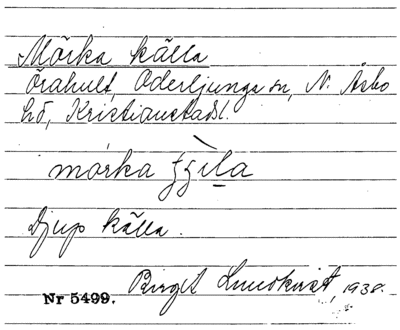 Mörka källa
Örahult, Oderljunga sn, N. Åsbo
hd, Kristianstads l.
mörka
Djup källa.
Birgit Lundkvist, 1938.
Nr 5499.